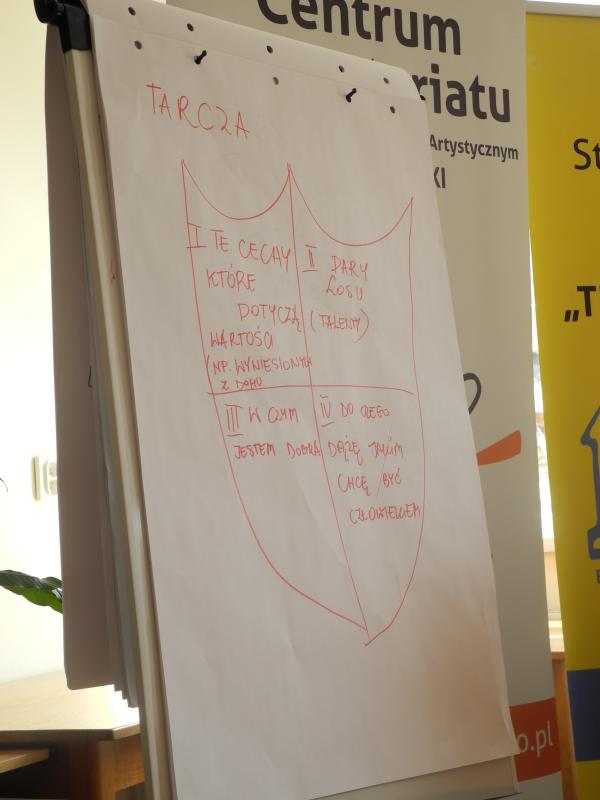 Centrum
riatu
Artystycznym
KI
TARCZA
I TE CECHY
KTÓRE
DOTYCZĄ
WARTOŚCI
(NP. WYNIESIONYCH
Z DOMU
II DARY
LOSU
(TALENTY)
III W CZYM
JESTEM DOBRA
IV DO CZEGO
DĄŻĘ JAKIM
CHCĘ BYĆ
CZŁOWIEKIEM
St
„T
o.pl